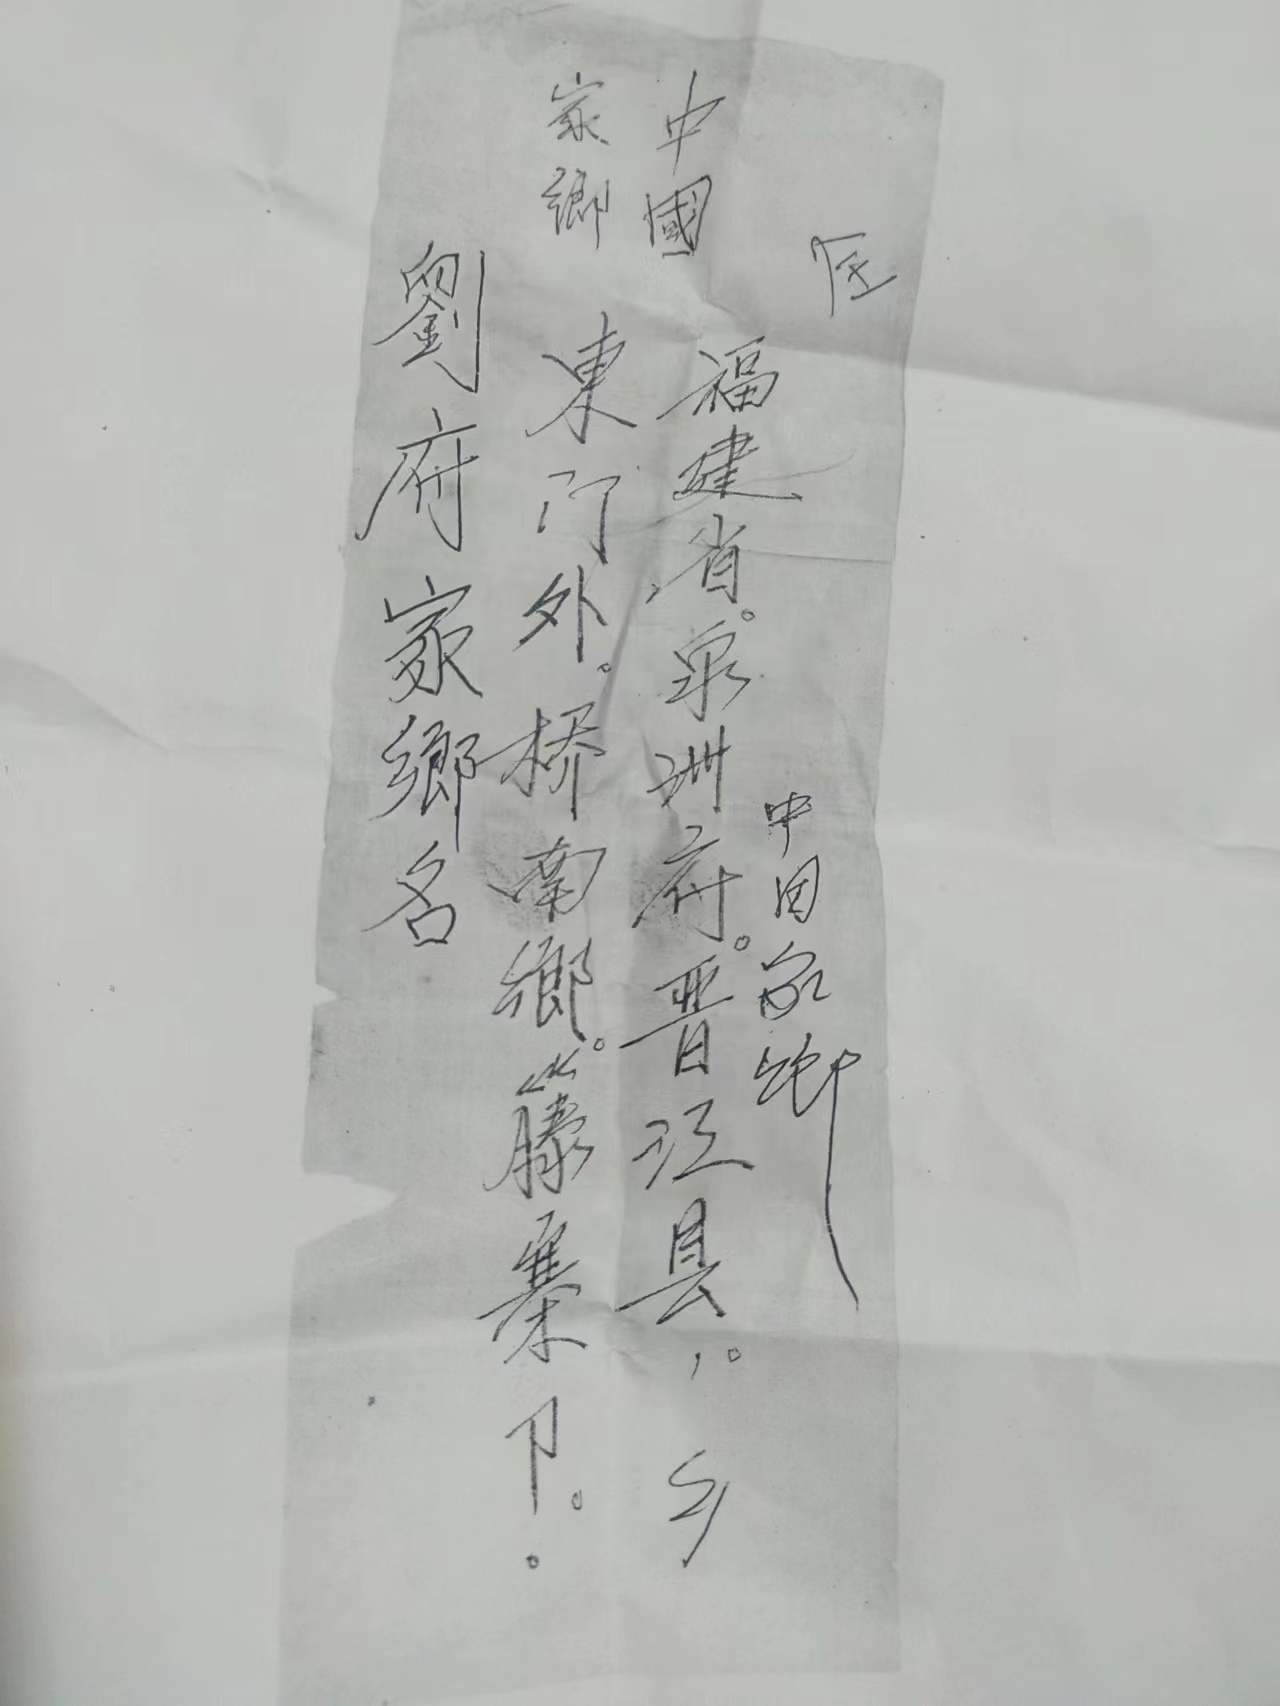 中囯家鄉
中國 福建省。泉洲府。晋江县。乡
家鄉 東门外。桥南鄉。籐寨下。
劉府家鄉名